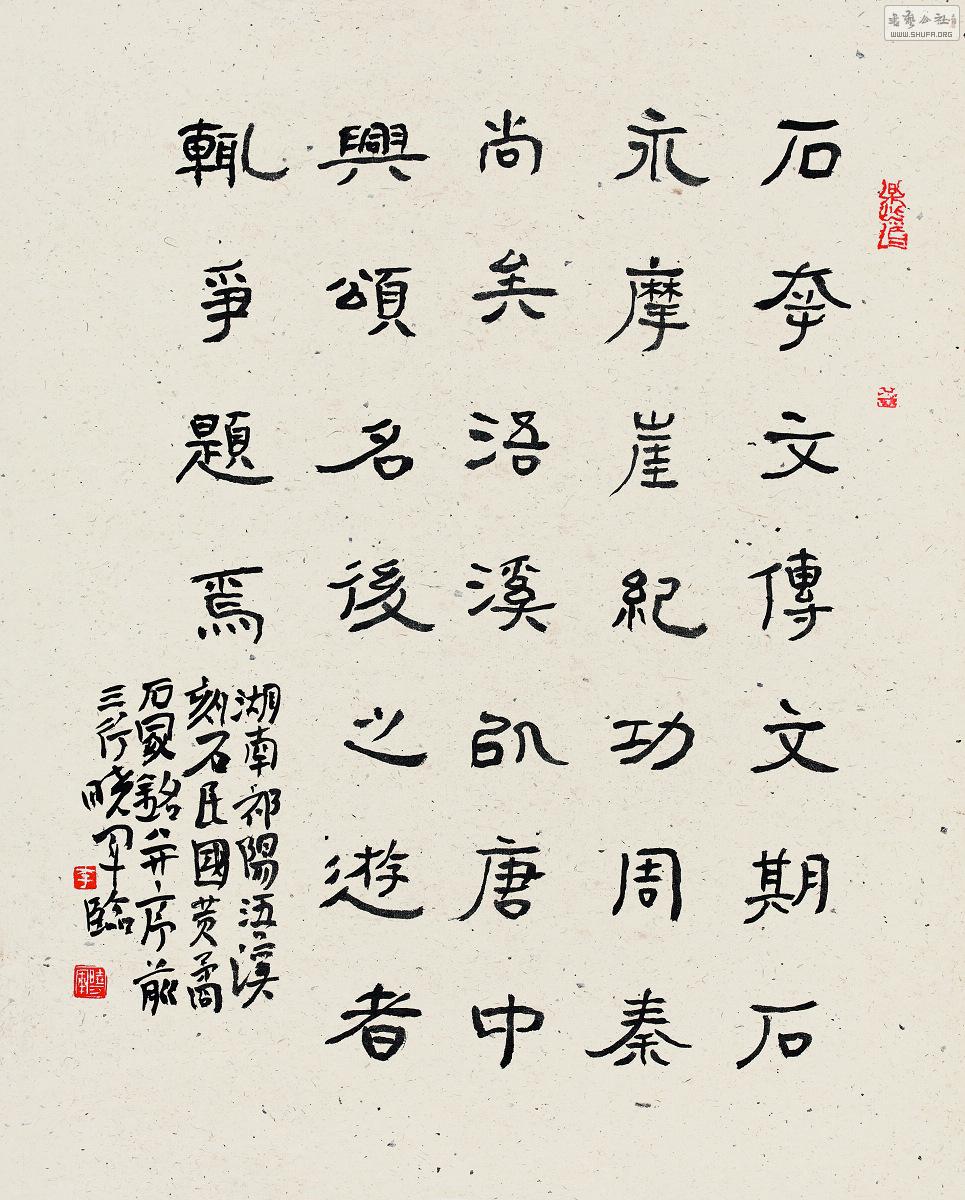 石幸文傳文期石
永摩崖紀功周秦
尚矣浯溪以唐中
興頌名後之遊者
輒爭題焉
湖南祁陽浯溪
刻石民國黄矞
石冢銘并序前
三行曉軍臨
李
WWW.SHUFA.ORG